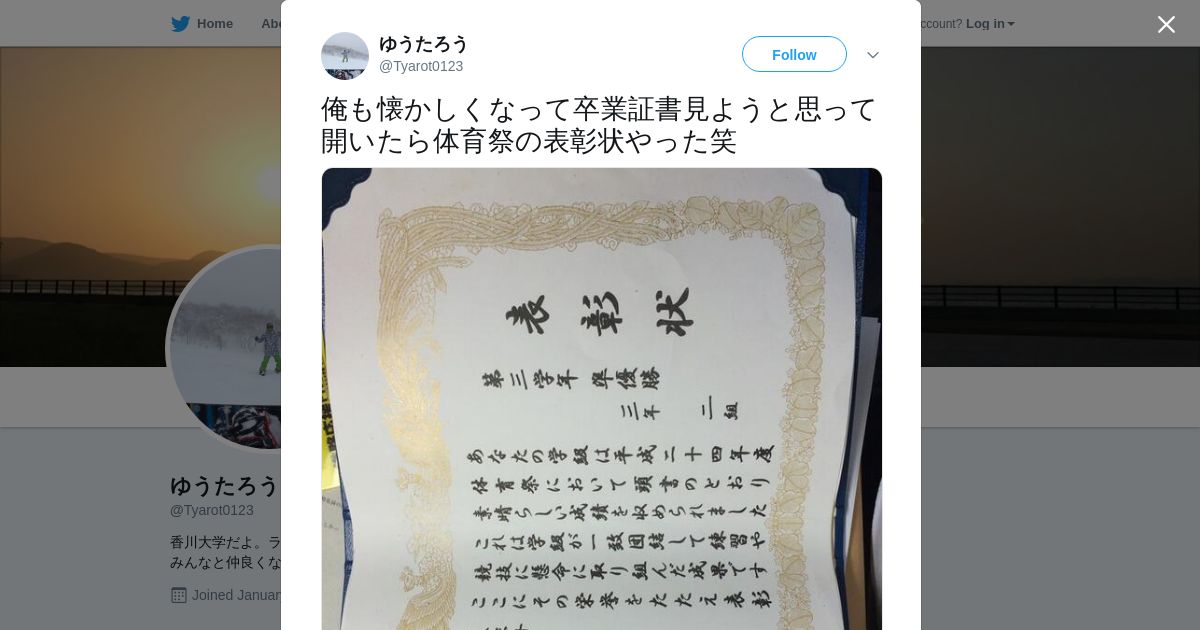 Home
Abo
ccount? Log in
ゆうたろう
@Tyarot0123
Follow
俺も懐かしくなって卒業証書見ようと思って
開いたら体育祭の表彰状やった笑
表彰状
第三学年 準優勝
三年 二組
あなたの学級は平成二十四年度
体育祭において頭書のとおり
素晴らしい成績を収められました
これは学級が一致団結して練習や
競技に懸命に取り組んだ成果です
ここにその栄誉をたたえ表彰
ゆうたろう
@Tyarot0123
香川大学だよ。ラ
みんなと仲良くな
Joined Januar